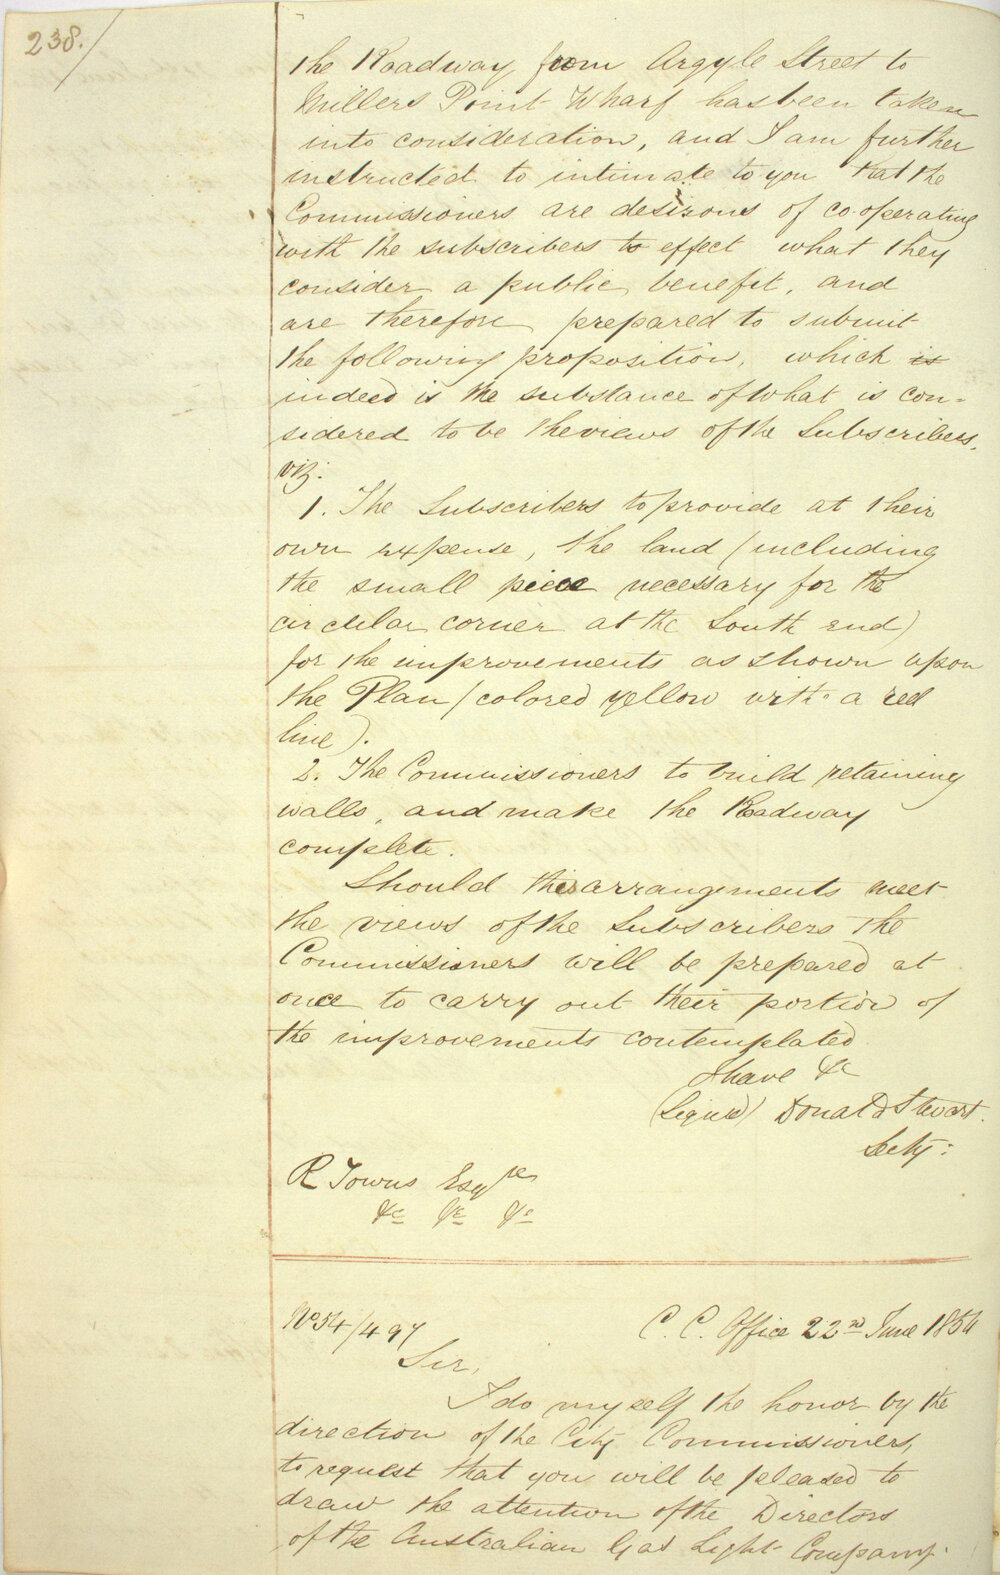 238.
the Roadway from Argyle Street to
Millers Point Wharf has been taken
into consideration, and I am further
instructed to intimate to you that the
Commissioners are desirous of co-operating
with the subscribers to effect what they
consider a public benefit, and
are therefore prepared to submit
the following proposition, which is
indeed is the substance of what is con-
sidered to be the views of the Subscribers.
viz:
1. The Subscribers to provide at their
own expense, the land (including
the small piece necessary for the
circular corner at the South end)
for the improvements as shown upon
the Plan (colored yellow with a red
line).
2. The Commissioners to build retaining
walls, and make the Roadway
complete.
Should this arrangements meet
the views of the Subscribers the
Commissioners will be prepared at
once to carry out their portion of
the improvements contemplated
I have &c
(Signed) Donald Stewart.
Secty:
R Towns Esqre
&c &c &c
No 54/497
C. C. Office 22nd June 1854
Sir,
I do myself the honor by the
direction of the City Commissioners,
to request that you will be pleased to
draw the attention of the Directors
of the Australian Gas Light Company